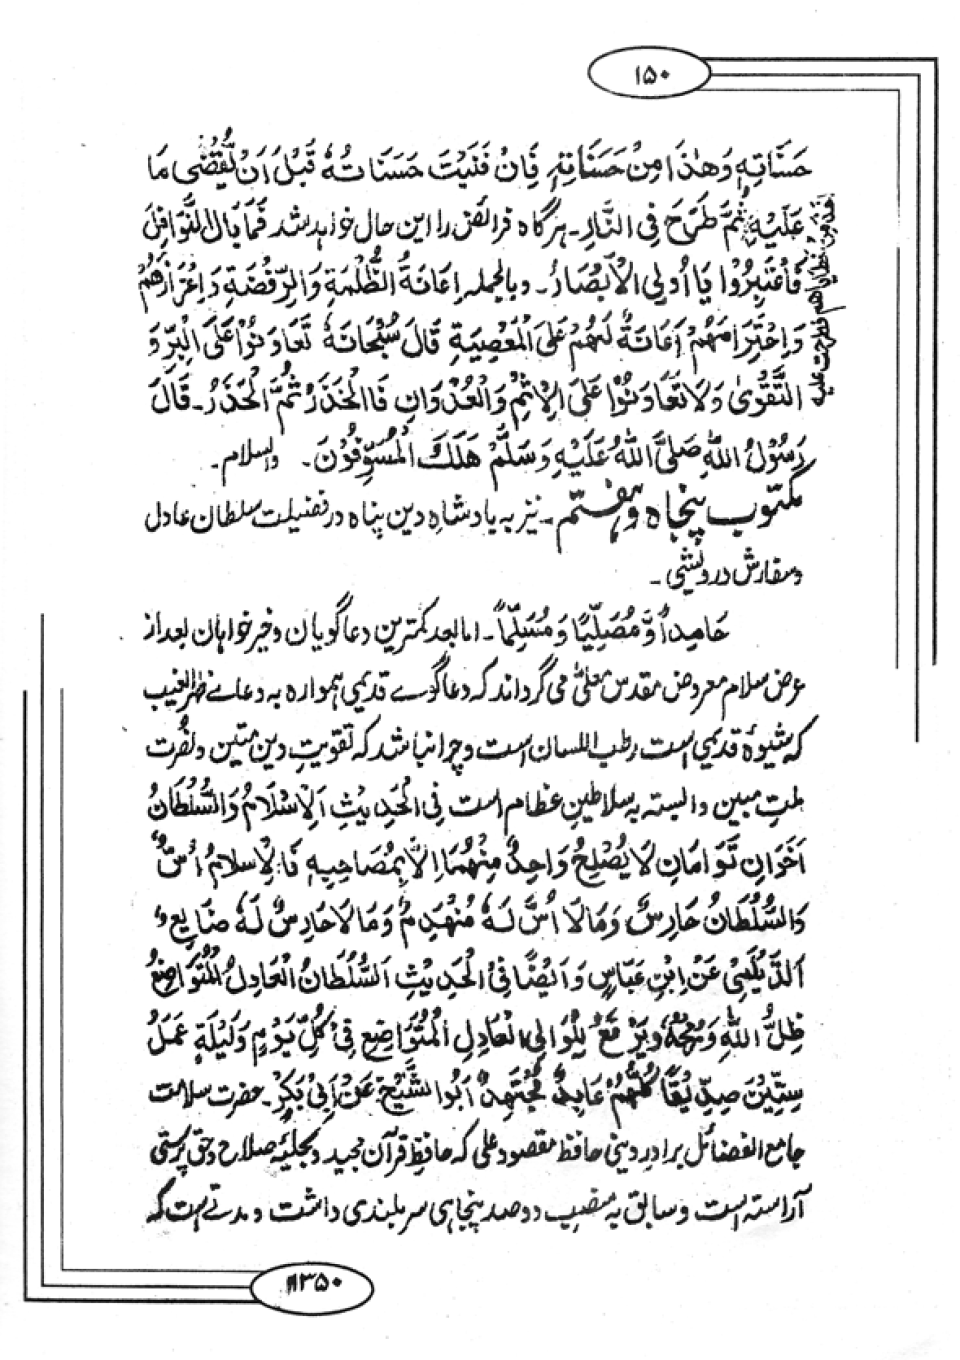 ۱۵۰
حَسَنَاتِهٖ وَهٰذَا مِنْ حَسَنَاتِهٖ فَاِنْ فَنِيَتْ حَسَنَاتُهٗ قَبْلَ اَنْ يُّقْضٰى مَا
عَلَيْهِ ثُمَّ طُرِحَ فِي النَّارِ۔ ہرگاہ فرائض را این حال خواہد شد فَمَا بَالُ النَّوَافِلِ
فَاعْتَبِرُوْا يَا اُولِي الْاَبْصَارِ۔ و بالجملہ اِعَانَةُ الظَّلَمَةِ وَالرَّفَضَةِ وَاِعْزَازُهُمْ
وَاِحْتِرَامُهُمْ اِعَانَةٌ لَهُمْ عَلَى الْمَعْصِيَةِ قَالَ سُبْحَانَهٗ تَعَاوَنُوْا عَلَى الْبِرِّ وَ
التَّقْوٰى وَلَا تَعَاوَنُوْا عَلَى الْاِثْمِ وَالْعُدْوَانِ فَالْحَذَرُ ثُمَّ الْحَذَرُ۔ قَالَ
رَسُوْلُ اللهِ صَلَّى اللهُ عَلَيْهِ وَسَلَّمْ هَلَكَ الْمُسَوِّفُوْنَ۔ والسلام۔
اخذ من خطاياهم فطرحت عليه
مکتوب پنجاہ و ہفتم۔ نیز بہ بادشاہ دین پناہ در فضیلت سلطان عادل
و سفارش درویشی۔
حَامِدًا وَّ مُصَلِّيًا وَ مُسَلِّمًا۔ اما بعد کمترین دعاگویان و خیر خواہان بعد از
عرض سلام معروض مقدس معلّٰی می گرداند کہ دعاگوے قدیمی ہموارہ بہ دعاے ظہر الغیب
کہ شیوہ قدیمی است رطب اللسان است و چرا نباشد کہ تقویتِ دین متین و نصرت
ملتِ مبین وابستہ بہ سلاطینِ عظام است فِي الْحَدِيْثِ اَلْاِسْلَامُ وَالسُّلْطَانُ
اَخَوَانِ تَوْاَمَانِ لَا يُصْلِحُ وَاحِدٌ مِنْهُمَا اِلَّا بِمُصَاحِبِهٖ فَالْاِسْلَامُ اُسٌّ
وَالسُّلْطَانُ حَارِسٌ وَمَالَا اُسَّ لَهٗ مُنْهَدِمٌ وَمَالَا حَارِسَ لَهٗ ضَايِعٌ
اَلدَّيْلَمِيْ عَنْ اِبْنِ عَبَّاسٍ وَاَيْضًا فِي الْحَدِيْثِ اَلسُّلْطَانُ الْعَادِلُ الْمُتَوَاضِعُ
ظِلُّ اللهِ وَرُمْحُهٗ وَيُرْفَعُ لِلْوَالِى الْعَادِلِ الْمُتَوَاضِعِ فِيْ كُلِّ يَوْمٍ وَلَيْلَةٍ عَمَلُ
سِتِّيْنَ صِدِّيْقًا كُلُّهُمْ عَابِدٌ مُجْتَهِدٌ اَبُوالشَّيْخِ عَنْ اَبِيْ بَكَرٍ۔ حضرت سلامت
جامع الفضائل برادرِ دینی حافظ مقصود علی کہ حافظ قرآن مجید و بحلیۂ صلاح و حق پرستی
آراستہ است و سابق بہ منصب دو صد پنجاہی سربلندی داشت و مدتے است کہ
۱۳۵۰